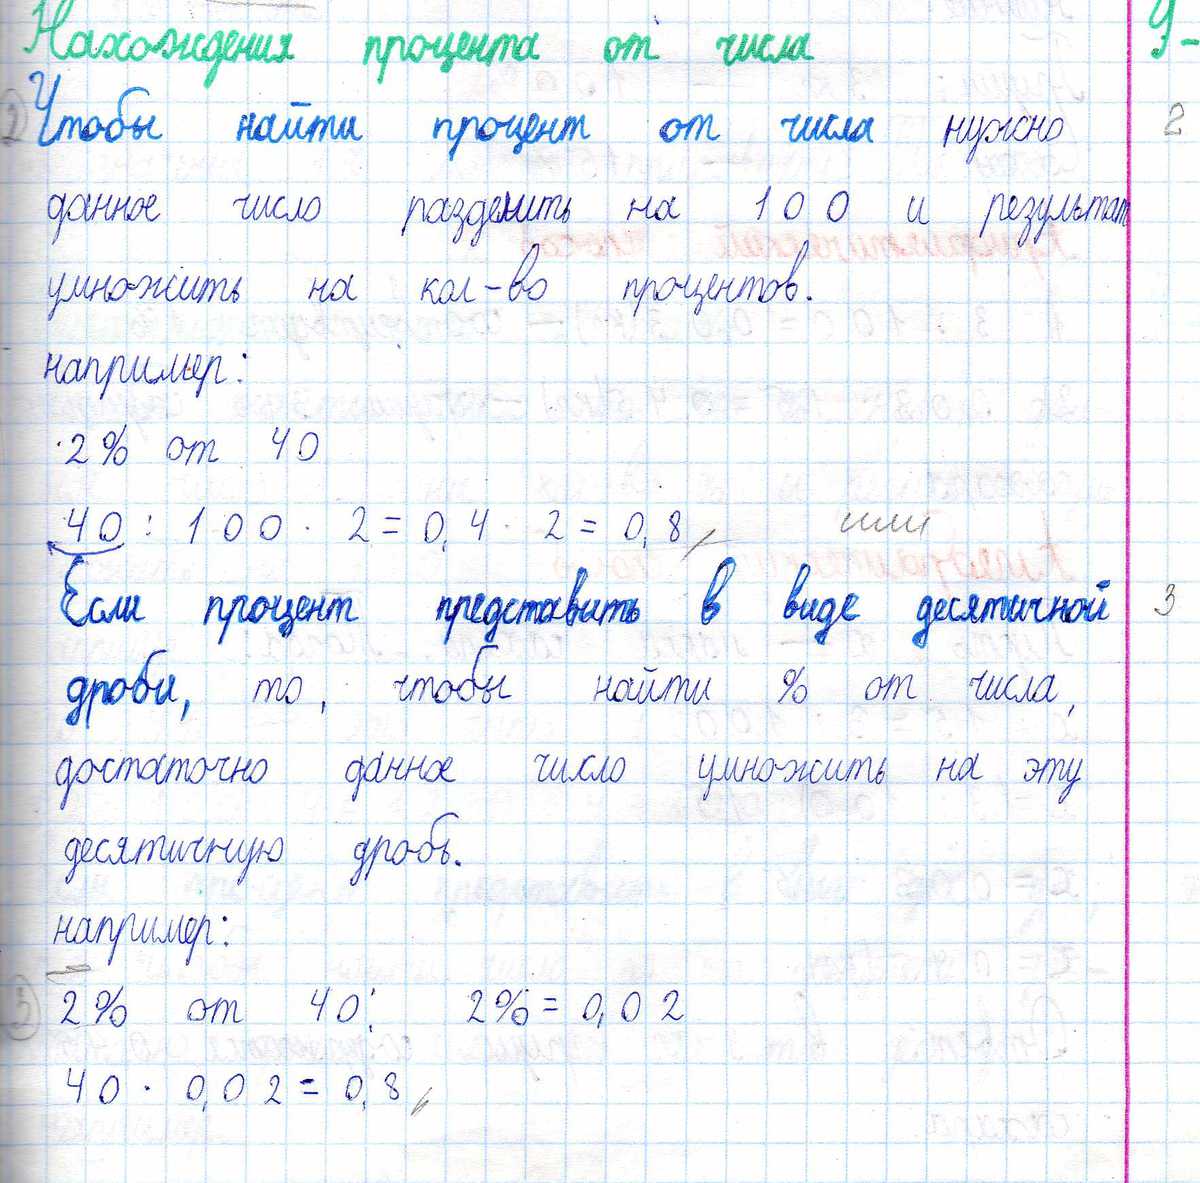 Нахождения процента от числа
Чтобы найти процент от числа нужно 2
данное число разделить на 100 и результат
умножить на кол-во процентов.
например:
2% от 40
40 : 100 · 2 = 0,4 · 2 = 0,8 или
Если процент представить в виде десятичной 3
дроби, то, чтобы найти % от числа,
достаточно данное число умножить на эту
десятичную дробь.
например:
2% от 40: 2% = 0,02
40 · 0,02 = 0,8